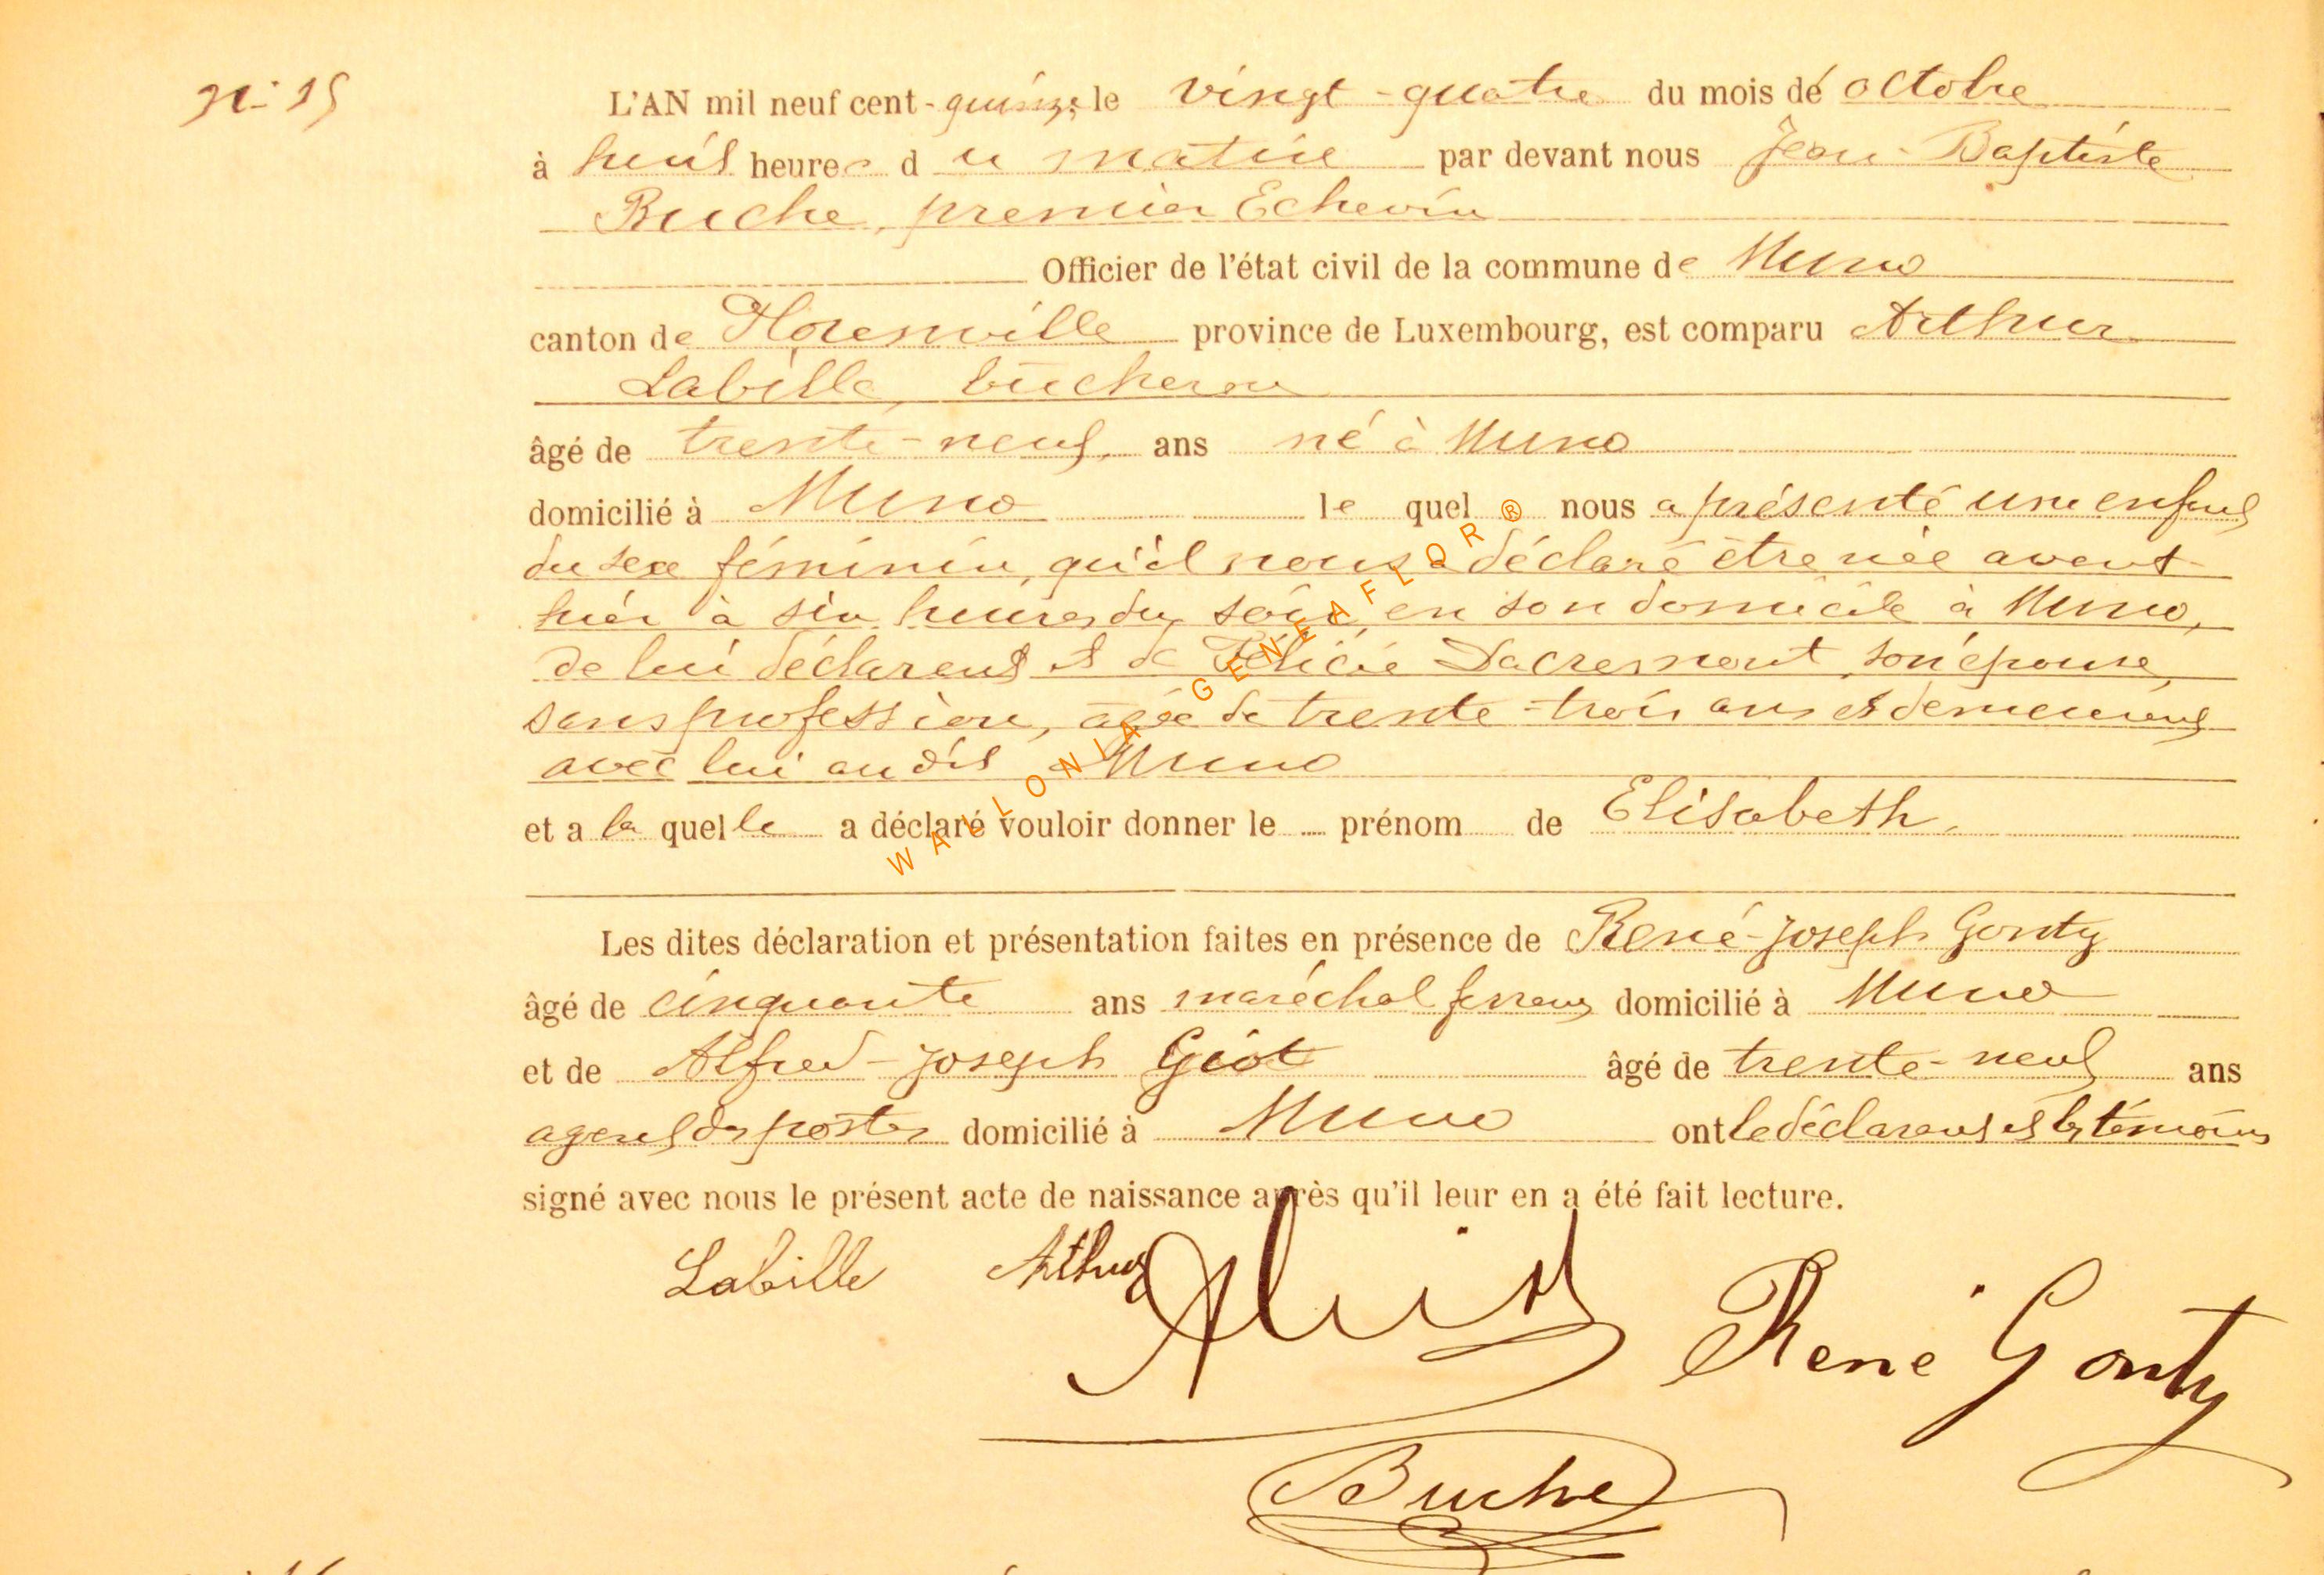 N° 15
L'AN mil neuf cent-quinze le vingt-quatre du mois de octobre
à huit heures du matin par devant nous Jean-Baptiste
Buche, premier Echevin
Officier de l'état civil de la commune de Muno
canton de Florenville province de Luxembourg, est comparu Arthur
Labille, bûcheron
âgé de trente-neuf ans né à Muno
domicilié à Muno lequel nous a présenté une enfant
du sexe féminin, qu'il nous a déclaré être née avant-
hier à six heures du soir, en son domicile à Muno,
de lui déclarant et de Félicie Sacremont, son épouse,
sans profession, âgée de trente-trois ans et demeurant
avec lui au dit Muno
et a laquelle a déclaré vouloir donner le prénom de Elisabeth,
Les dites déclaration et présentation faites en présence de René-Joseph Gonty
âgé de cinquante ans maréchal ferrant domicilié à Muno
et de Alfred-Joseph Giot âgé de trente-neuf ans
agent des postes domicilié à Muno ont le déclarant et les témoins
signé avec nous le présent acte de naissance après qu'il leur en a été fait lecture.
Labille Arthur
René Gonty
Buche
WALLONIA GENEAFLOR ®